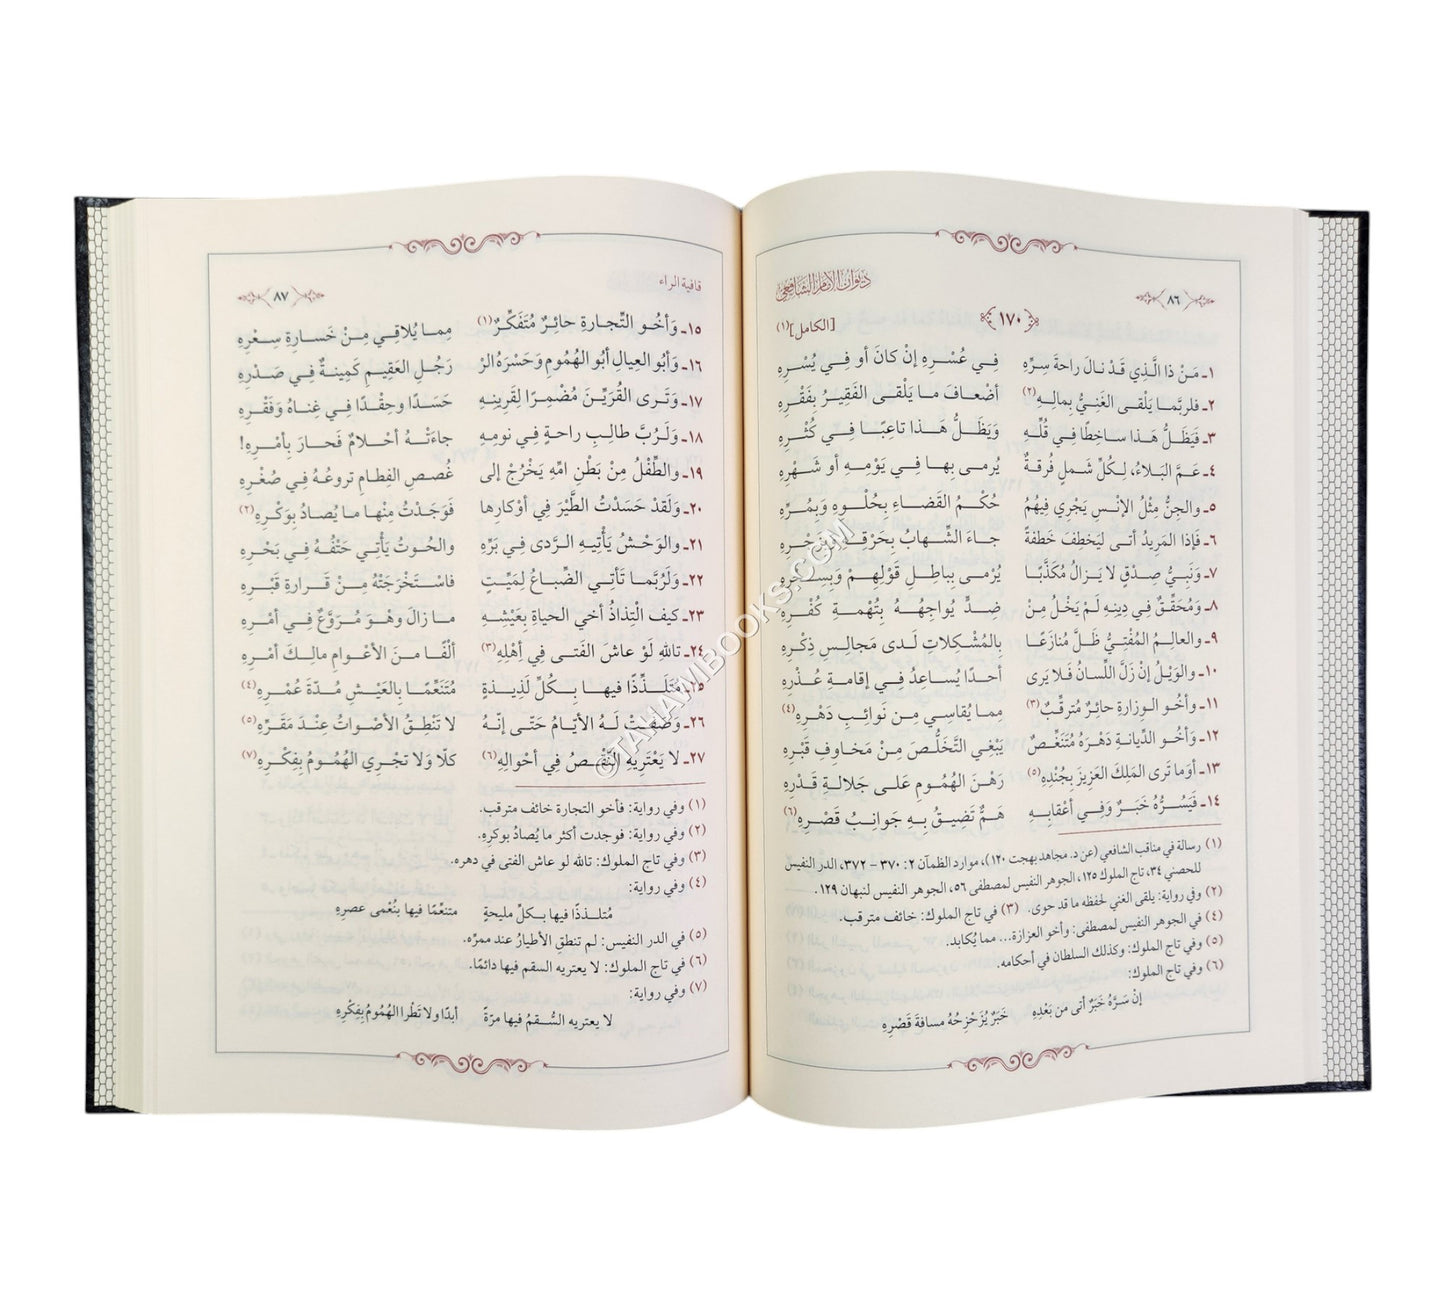 ٨٦
ديوان الإمام الشافعي
١٧٠
[الكامل](١)
١ـ مَنْ ذا الَّذِي قَدْ نالَ راحةَ سِرِّهِ فِي عُسْرِهِ إنْ كانَ أو فِي يُسْرِهِ
٢ـ فلربَّما يَلْقى الغَنِيُّ بِمالِهِ(٢) أضْعافَ ما يَلْقى الفَقِيرُ بِفَقْرِهِ
٣ـ فَيَظَلُّ هَذا ساخِطًا فِي قُلِّهِ وَيَظَلُّ هَذا تاعِبًا فِي كُثْرِهِ
٤ـ عَمَّ البَلاءُ، لِكُلِّ شَملٍ فُرقةٌ يُرمى بها فِي يَوْمِهِ أو شَهْرِهِ
٥ـ والجِنُّ مِثْلُ الإنْسِ يَجْرِي فِيهُمُ حُكْمُ القَضاءِ بِحُلْوِهِ وَبِمُرِّهِ
٦ـ فَإذا المَرِيدُ أتى لِيَخطِفَ خَطفةً جاءَ الشِّهابُ بِحَرْقِهِ وَبِزَجْرِهِ
٧ـ وَنَبِيُّ صِدْقٍ لا يَزالُ مُكَذَّبًا يُرْمى بِباطِلِ قَوْلِهِمْ وَبِسِحْرِهِ
٨ـ وَمُحَقِّقٌ فِي دِينِهِ لَمْ يَخْلُ مِنْ ضِدٍّ يُواجِهُهُ بِتُهْمةِ كُفْرِهِ
٩ـ والعالِمُ المُفْتِيُّ ظَلَّ مُنازَعًا بِالمُشْكِلاتِ لَدى مَجالِسِ ذِكْرِهِ
١٠ـ والوَيْلُ إنْ زَلَّ اللِّسانُ فَلا يَرى أحدًا يُساعِدُ فِي إقامةِ عُذْرِهِ
١١ـ وأخُو الوِزارةِ حائِرٌ مُترقِّبٌ(٣) مِما يُقاسِي مِن نَوائِبِ دَهْرِهِ(٤)
١٢ـ وَأخُو الدِّيانةِ دَهْرَهُ مُتَنَغِّصٌ يَبْغِي التَّخَلُّصَ مِنْ مَخاوِفِ قَبْرِهِ
١٣ـ أوَما تَرى المَلِكَ العَزِيزَ بِجُنْدِهِ(٥) رَهْنَ الهُمُومِ عَلى جَلالةِ قَدْرِهِ
١٤ـ فَيَسُرُّهُ خَبَرٌ وَفِي أعْقابِهِ هَمٌّ تَضِيقُ بِهِ جَوانِبُ قَصْرِهِ(٦)
(١) رسالة في مناقب الشافعي (عن د. مجاهد بهجت ١٢٠)، موارد الظمآن ٢: ٣٧٠ – ٣٧٢، الدر النفيس
للحصني ٣٤، تاج الملوك ١٢٥، الجوهر النفيس لمصطفى ٥٦، الجوهر النفيس لنبهان ١٢٩.
(٢) وفي رواية: يلقى الغني لحفظه ما قد حوى. (٣) في تاج الملوك: خائف مترقب.
(٤) في الجوهر النفيس لمصطفى: وأخو العزازة... مما يُكابد.
(٥) وفي تاج الملوك: وكذلك السلطان في أحكامه.
(٦) وفي تاج الملوك:
إنْ سَرَّهُ خَبَرٌ أتى من بَعْدِهِ خَبَرٌ يُزَحْزِحُهُ مسافةَ قَصْرِهِ
قافية الراء
٨٧
١٥ـ وَأخُو التِّجارةِ حائِرٌ مُتَفَكِّرٌ(١) مِما يُلاقِي مِنْ خَسارةِ سِعْرِهِ
١٦ـ وَأبُو العِيالِ أبُو الهُمُومِ وَحَسْرَةُ الرْ رَجُلِ العَقِيمِ كَمِينةٌ فِي صَدْرِهِ
١٧ـ وَتَرى القَرَيِّنَ مُضْمِرًا لِقَرِينِهِ حَسَدًا وحِقْدًا فِي غِناهُ وَفَقْرِهِ
١٨ـ وَلَرُبَّ طالِبِ راحةٍ فِي نومِهِ جاءَتْهُ أحْلامٌ فَحارَ بِأمْرِهِ!
١٩ـ والطِّفْلُ مِنْ بَطْنِ امِّهِ يَخْرُجْ إلى غُصصِ الفِطامِ تروعُهُ فِي صُغْرِهِ
٢٠ـ وَلَقَدْ حَسَدْتُ الطَّيْرَ فِي أوْكارِها فَوَجَدْتُ مِنْها ما يُصادُ بِوَكْرِهِ(٢)
٢١ـ والوَحْشُ يَأْتِيهِ الرَّدى فِي بَرِّهِ والحُوتُ يَأْتِي حَتْفُهُ فِي بَحْرِهِ
٢٢ـ وَلَرُبَّما تَأتِي الضِّباعُ لِمَيِّتٍ فاسْتَخْرَجَتْهُ مِنْ قَرارةِ قَبْرِهِ
٢٣ـ كيف الْتِذاذُ أخي الحياةِ بِعَيْشِهِ ما زالَ وهْوَ مُرَوَّعٌ فِي أمْرِهِ
٢٤ـ تاللهِ لَوْ عاشَ الفَتى فِي أهْلِهِ(٣) ألْفًا منَ الأعْوامِ مالِكَ أمْرِهِ
٢٥ـ مُتَلَذِّذًا فيها بِكُلِّ لَذِيذةٍ مُتَنَعِّمًا بِالعَيْشِ مُدّةَ عُمْرِهِ(٤)
٢٦ـ وَصَفَتْ لَهُ الأيّامُ حَتّى إنّهُ لا تَنْطِقُ الأصْواتُ عِنْدَ مَقَرِّهِ(٥)
٢٧ـ لا يَعْتَرِيهِ النَّقْصُ فِي أحْوالِهِ(٦) كلّا وَلا تجْرِي الهُمُومُ بِفِكْرِهِ(٧)
(١) وفي رواية: فأخو التجارة خائف مترقب.
(٢) وفي رواية: فوجدت أكثر ما يُصادُ بوكرِهِ.
(٣) وفي تاج الملوك: تالله لو عاش الفتى في دهره.
(٤) وفي رواية:
مُتلذذًا فيها بكلِّ مليحةٍ متنعِّمًا فيها بنُعْمى عصرِهِ
(٥) في الدر النفيس: لم تنطقِ الأطيارُ عند ممرِّه.
(٦) في تاج الملوك: لا يعتريه السقم فيها دائمًا.
(٧) وفي رواية:
لا يعتريه السُّقمُ فيها مرّةً أبدًا ولا تَطْرا الهُمُومُ بِفِكْرِهِ
©TAHAMBOOKS.COM